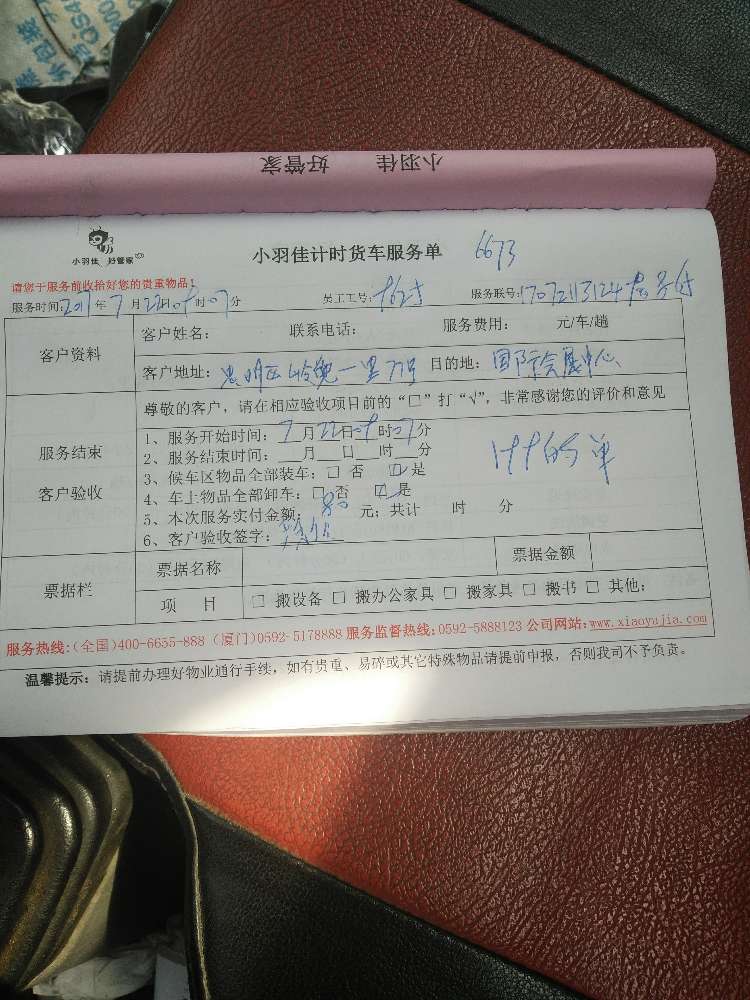 小羽佳 好管家
小羽佳 好管家
小羽佳计时货车服务单 6673
请您于服务前收拾好您的贵重物品！
服务时间：2017年7月22日09时07分 员工工号： 服务联号：
客户资料
客户姓名： 联系电话： 服务费用： 元/车/趟
客户地址： 一里77号 目的地：国际会展中心
服务结束
客户验收
尊敬的客户，请在相应验收项目前的“□”打“√”，非常感谢您的评价和意见
1、服务开始时间：7月22日09时07分
2、服务结束时间：__月__日__时__分
3、候车区物品全部装车：□ 否 ☑ 是
4、车上物品全部卸车：□ 否 ☑ 是
5、本次服务实付金额：80元；共计 时 分
6、客户验收签字：
的单
票据栏
票据名称 票据金额
项 目 □ 搬设备 □ 搬办公家具 □ 搬家具 □ 搬书 □ 其他：
服务热线:(全国)400-6655-888 (厦门)0592-5178888 服务监督热线:0592-5888123 公司网站:www.xiaoyujia.com
温馨提示：请提前办理好物业通行手续，如有贵重、易碎或其它特殊物品请提前申报，否则我司不予负责。